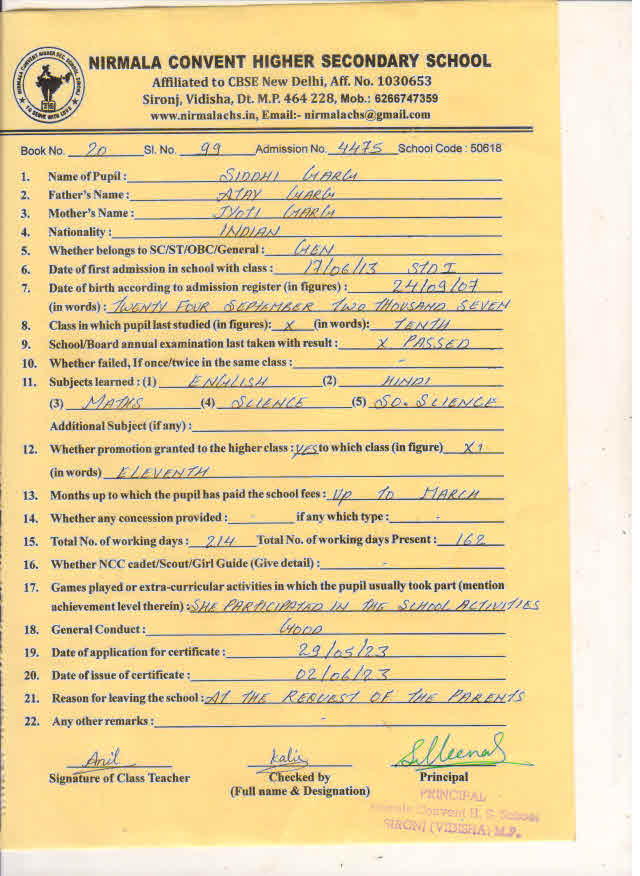 NIRMALA CONVENT HIGHER SEC. SCHOOL, SIRONJ
TO SERVE WITH LOVE
NIRMALA CONVENT HIGHER SECONDARY SCHOOL
Affiliated to CBSE New Delhi, Aff. No. 1030653
Sironj, Vidisha, Dt. M.P. 464 228, Mob.: 6266747359
www.nirmalachs.in, Email:- nirmalachs@gmail.com
Book No. 20 Sl. No. 99 Admission No. 4475 School Code : 50618
1. Name of Pupil : SIDDHI GARG
2. Father's Name : AJAY GARG
3. Mother's Name : JYOTI GARG
4. Nationality : INDIAN
5. Whether belongs to SC/ST/OBC/General : GEN
6. Date of first admission in school with class : 17/06/13 STD I
7. Date of birth according to admission register (in figures) : 24/09/07
(in words) : TWENTY FOUR SEPTEMBER TWO THOUSAND SEVEN
8. Class in which pupil last studied (in figures): X (in words): TENTH
9. School/Board annual examination last taken with result : X PASSED
10. Whether failed, If once/twice in the same class : -
11. Subjects learned : (1) ENGLISH (2) HINDI
(3) MATHS (4) SCIENCE (5) SO. SCIENCE
Additional Subject (if any) :
12. Whether promotion granted to the higher class : YES to which class (in figure) XI
(in words) ELEVENTH
13. Months up to which the pupil has paid the school fees : UP TO MARCH
14. Whether any concession provided : - if any which type : -
15. Total No. of working days : 214 Total No. of working days Present : 162
16. Whether NCC cadet/Scout/Girl Guide (Give detail) : -
17. Games played or extra-curricular activities in which the pupil usually took part (mention
achievement level therein) : SHE PARTICIPATED IN THE SCHOOL ACTIVITIES
18. General Conduct : GOOD
19. Date of application for certificate : 29/05/23
20. Date of issue of certificate : 02/06/23
21. Reason for leaving the school : AT THE REQUEST OF THE PARENTS
22. Any other remarks : -
Anil
Signature of Class Teacher Checked by Principal
(Full name & Designation)
PRINCIPAL
Nirmala Convent H. S. School
SIRONJ (VIDISHA) M.P.